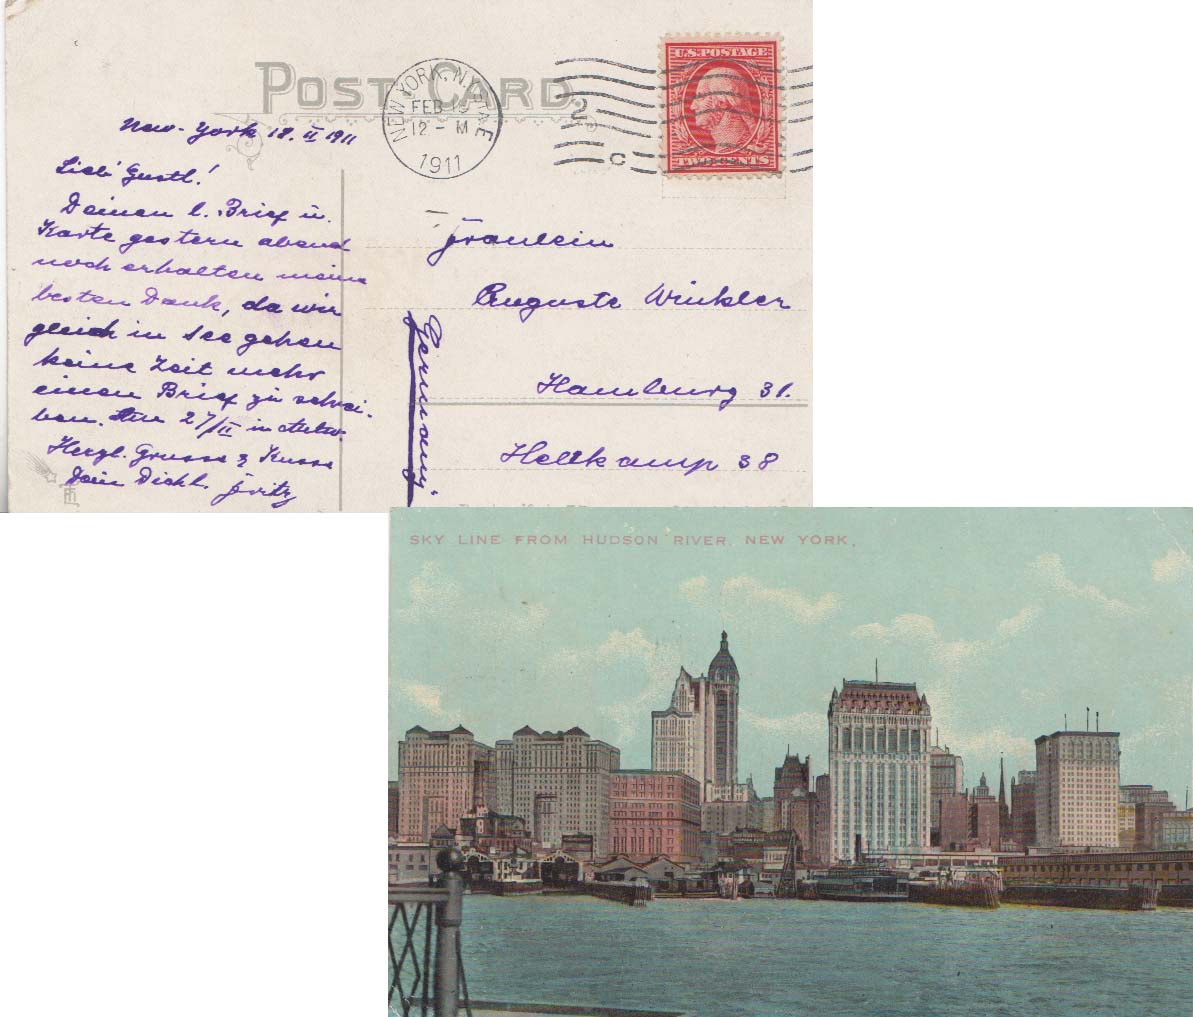 POST CARD.
NEW YORK, N.Y. STA. E
FEB 18
12 - M
1911
2
C
U.S. POSTAGE
TWO CENTS
New-York 18. II 1911
Lieb' Gustl!
Deinen l. Brief u.
Karte gestern abend
noch erhalten meine
besten Dank, da wir
gleich in See gehen
keine Zeit mehr
einen Brief zu schrei-
ben. Am 27/II in Antw.
Herzl. Grusse & Kusse
Dein Dichl. Fritz
Fraulein
Auguste Winkler
Hamburg 31.
Hellkamp 38
Germany.
SKY LINE FROM HUDSON RIVER, NEW YORK.